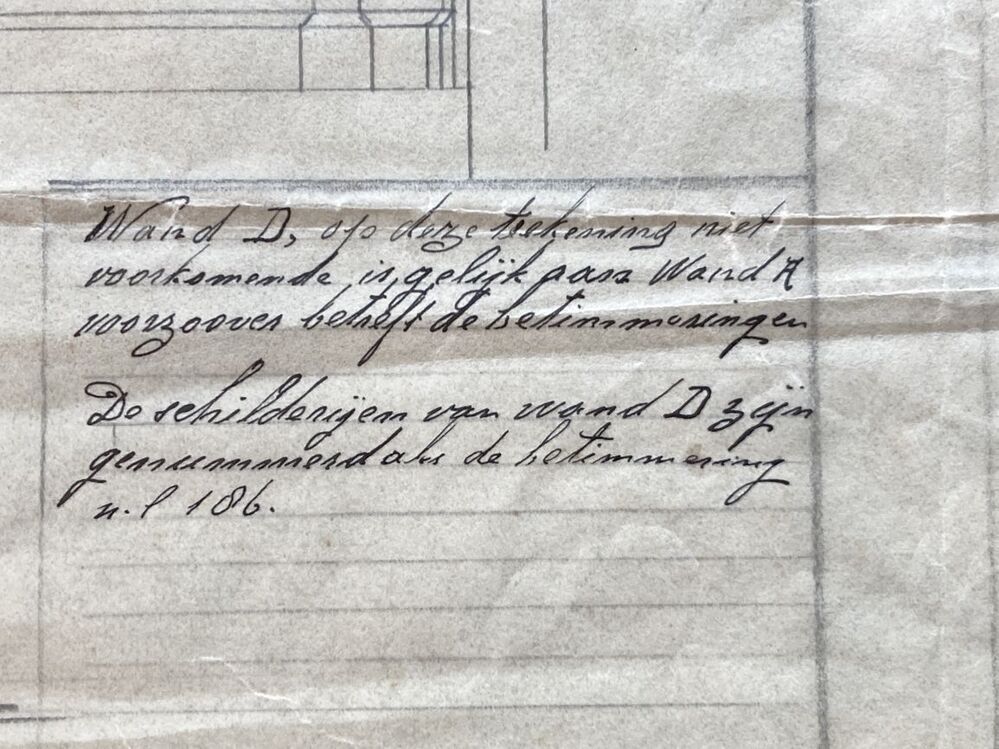 Wand D, op deze teekening niet
voorkomende is gelijk aan Wand A
voorzoover betreft de betimmeringen
De schilderijen van wand D zijn
genummerd als de betimmering
n.l 186.